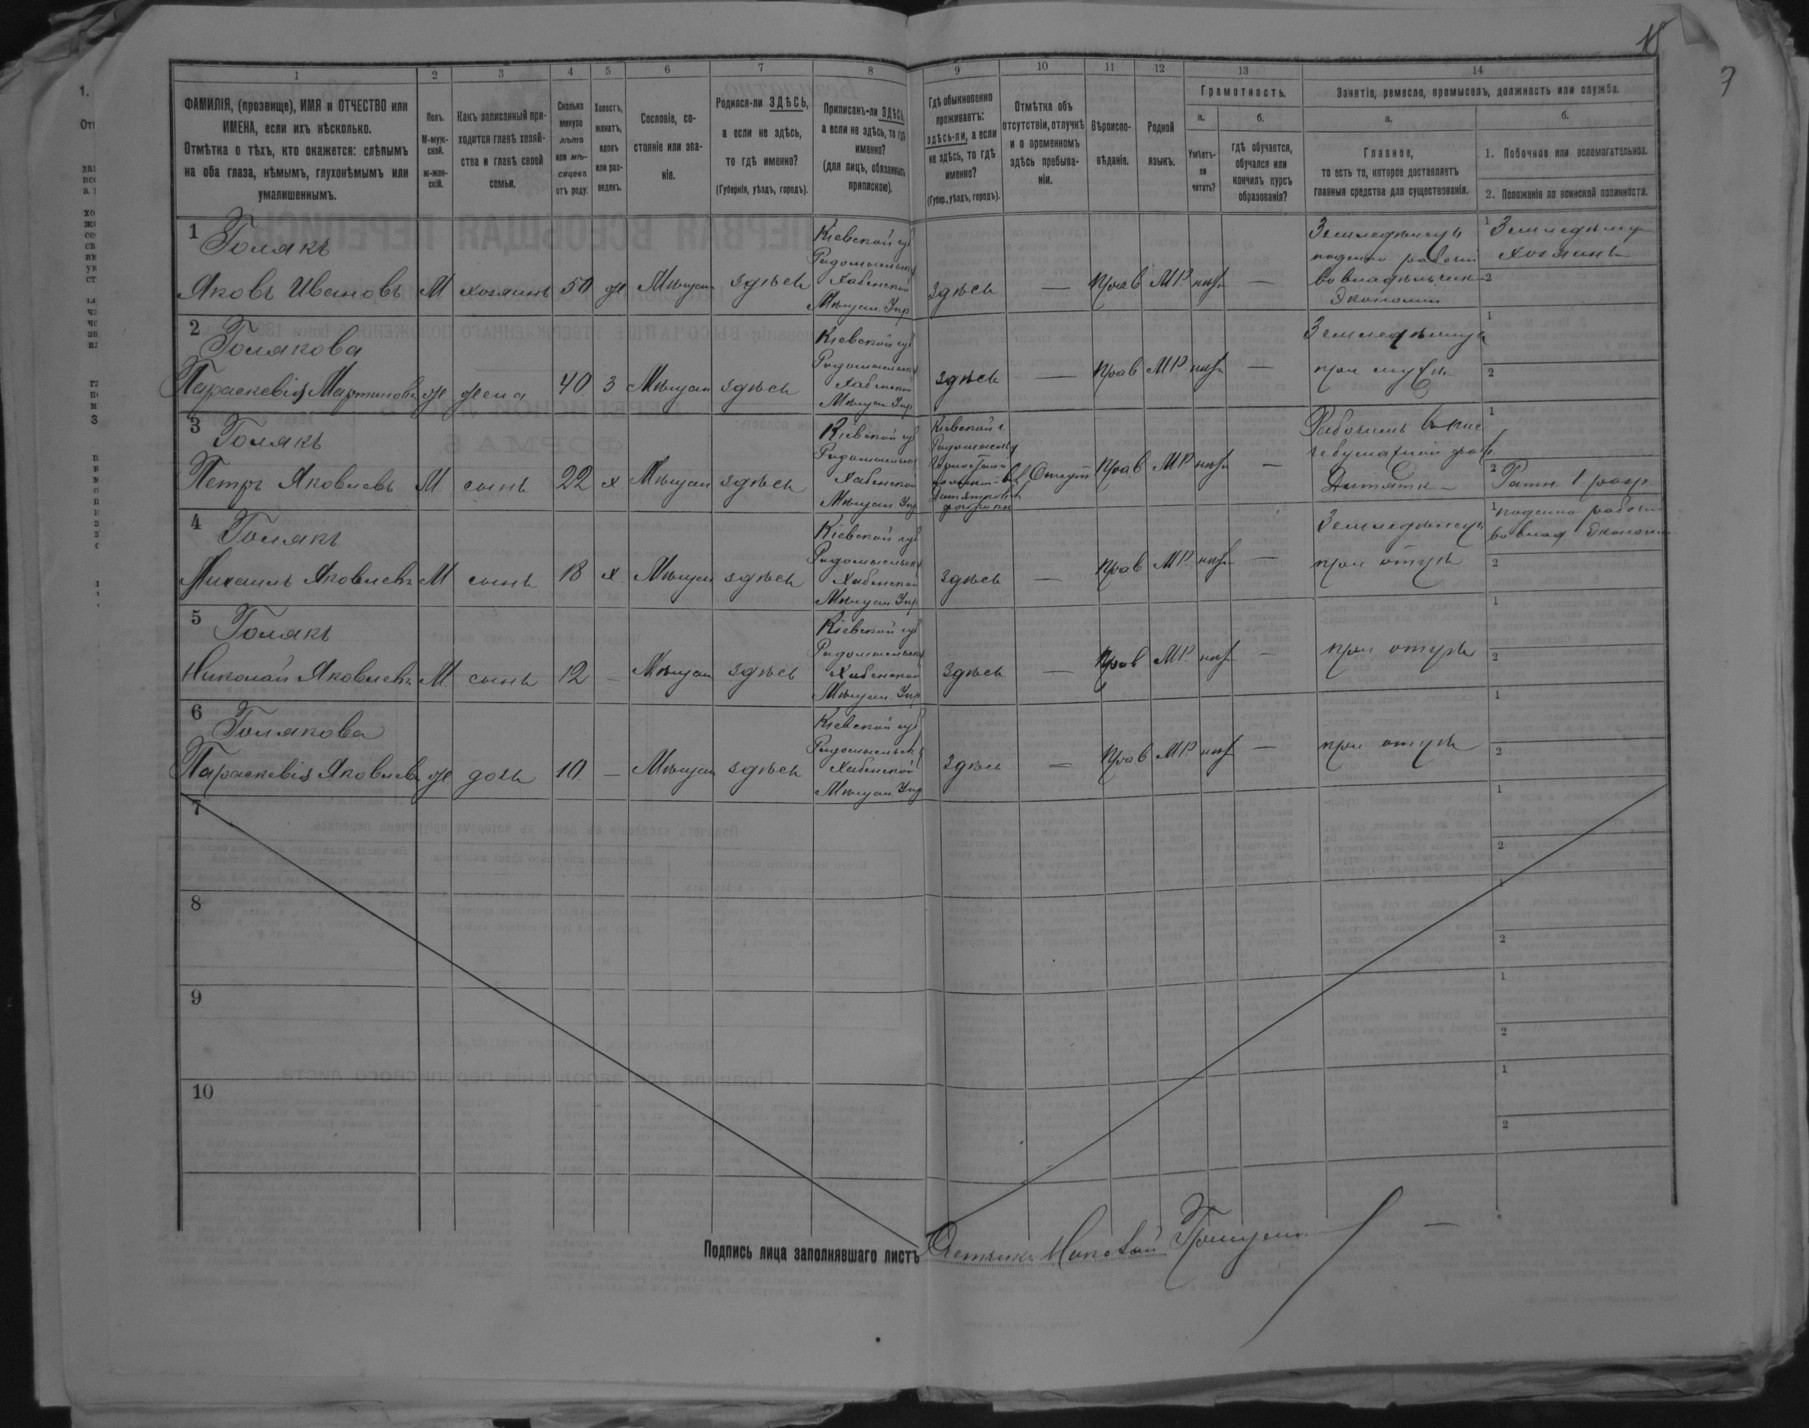 1 2 3 4 5 6 7 8 9 10 11 12 13 14
ФАМИЛІЯ, (прозвище), ИМЯ и ОТЧЕСТВО или
ИМЕНА, если ихъ нѣсколько.
Отмѣтка о тѣхъ, кто окажется: слѣпымъ
на оба глаза, нѣмымъ, глухонѣмымъ или
умалишеннымъ.
Полъ.
М-муж-
ской.
ж-жен-
скій.
Какъ записанный при-
ходится главѣ хозяй-
ства и главѣ своей
семьи.
Сколько
минуло
лѣтъ
или мѣ-
сяцевъ
отъ роду.
Холостъ,
женатъ,
вдовъ
или раз-
веденъ.
Сословіе, со-
стояніе или зва-
ніе.
Родился-ли ЗДѢСЬ,
а если не здѣсь,
то гдѣ именно?
(Губернія, уѣздъ, городъ).
Приписанъ-ли ЗДѢСЬ,
а если не здѣсь, то гдѣ
именно?
(для лицъ, обязанныхъ
припискою).
Гдѣ обыкновенно
проживаетъ:
здѣсь-ли, а если
не здѣсь, то гдѣ
именно?
(Губер., уѣздъ, городъ).
Отмѣтка объ
отсутствіи, отлучкѣ
и о временномъ
здѣсь пребыва-
ніи.
Вѣроиспо-
вѣданіе.
Родной
языкъ.
Грамотность.
а.
Умѣетъ-
ли
читать?
б.
гдѣ обучается,
обучался или
кончилъ курсъ
образованія?
Занятіе, ремесло, промыселъ, должность или служба.
а.
Главное,
то есть то, которое доставляетъ
главныя средства для существованія.
б.
1. Побочное или вспомогательное.
2. Положеніе по воинской повинности.
1 Голякъ
Яковъ Ивановъ М хозяинъ 50 ж Мѣщан здѣсь
Кіевской губ
Радомысльск
Хабенской
Мѣщан. Упр
здѣсь — Прав МР —
Земледѣлецъ
поденно рабочій
во владѣльческ
Экономіи
1 Земледѣлец
хозяинъ
2
2 Голякова
Параскевія Мартинова ж жена 40 З Мѣщан здѣсь
Кіевской губ
Радомысльск
Хабенской
Мѣщан Упр
здѣсь — Прав МР —
Земледѣлецъ
при мужѣ
1
2
3 Голякъ
Петръ Яковлевъ М сынъ 22 х Мѣщан здѣсь
Кіевской губ
Радомысльск
Хабенской
Мѣщан Упр
Кіевской г
Радомысльск
фабрики
Отсут Прав МР —
Рабочимъ въ пис
чебумажной фаб
Дитятк
1
2 Ратн 1 разр
4 Голякъ
Михаилъ Яковлевъ М сынъ 18 х Мѣщан здѣсь
Кіевской губ
Радомысльск
Хабенской
Мѣщан Упр
здѣсь — Прав МР —
Земледѣлецъ
при отцѣ
1 поденно рабочи
во влад Экономи
2
5 Голякъ
Николай Яковлевъ М сынъ 12 — Мѣщан здѣсь
Кіевской губ
Радомысльск
Хабенской
Мѣщан. Упр
здѣсь — Прав МР —
при отцѣ
1
2
6 Голякова
Параскевія Яковлева ж дочь 10 — Мѣщан здѣсь
Кіевской губ
Радомысльск
Хабенской
Мѣщан Упр
здѣсь — Прав МР —
при отцѣ
1
2
7
1
2
8
1
2
9
1
2
10
1
2
Подпись лица заполнявшаго листъ